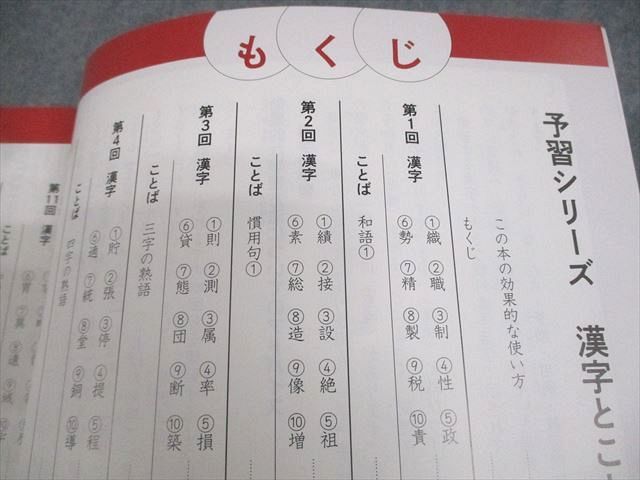 もくじ
予習シリーズ 漢字とこ
この本の効果的な使い方
もくじ
第1回 漢字 ①織 ②職 ③制 ④性 ⑤政
⑥勢 ⑦精 ⑧製 ⑨税 ⑩責
ことば 和語①
第2回 漢字 ①績 ②接 ③設 ④絶 ⑤祖
⑥素 ⑦総 ⑧造 ⑨像 ⑩増
ことば 慣用句①
第3回 漢字 ①則 ②測 ③属 ④率 ⑤損
⑥貸 ⑦態 ⑧団 ⑨断 ⑩築
ことば 三字の熟語
第4回 漢字 ①貯 ②張 ③停 ④提 ⑤程
⑥適 ⑦統 ⑧堂 ⑨銅 ⑩導
ことば 四字の熟語
第11回 漢字
ことば